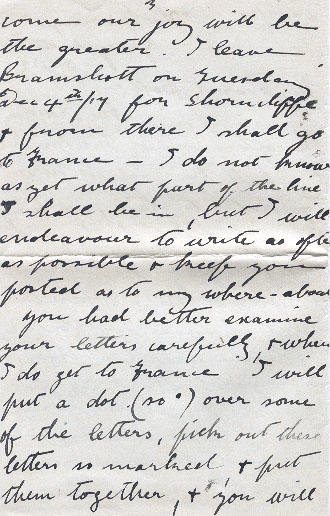 3
come our joy will be
the greater. I leave
Bramshott on Tuesday
Dec 4th/17 for Shorncliffe
+ from there I shall go
to France – I do not know
as yet what part of the line
I shall be in, but I will
endeavour to write as ofte
as possible + keep you
posted as to my where-abou
you had better examine
your letters carefully, + when
I do get to France I will
put a dot (so •) over some
of the letters, pick out these
letters so marked, + put
them together, + you will